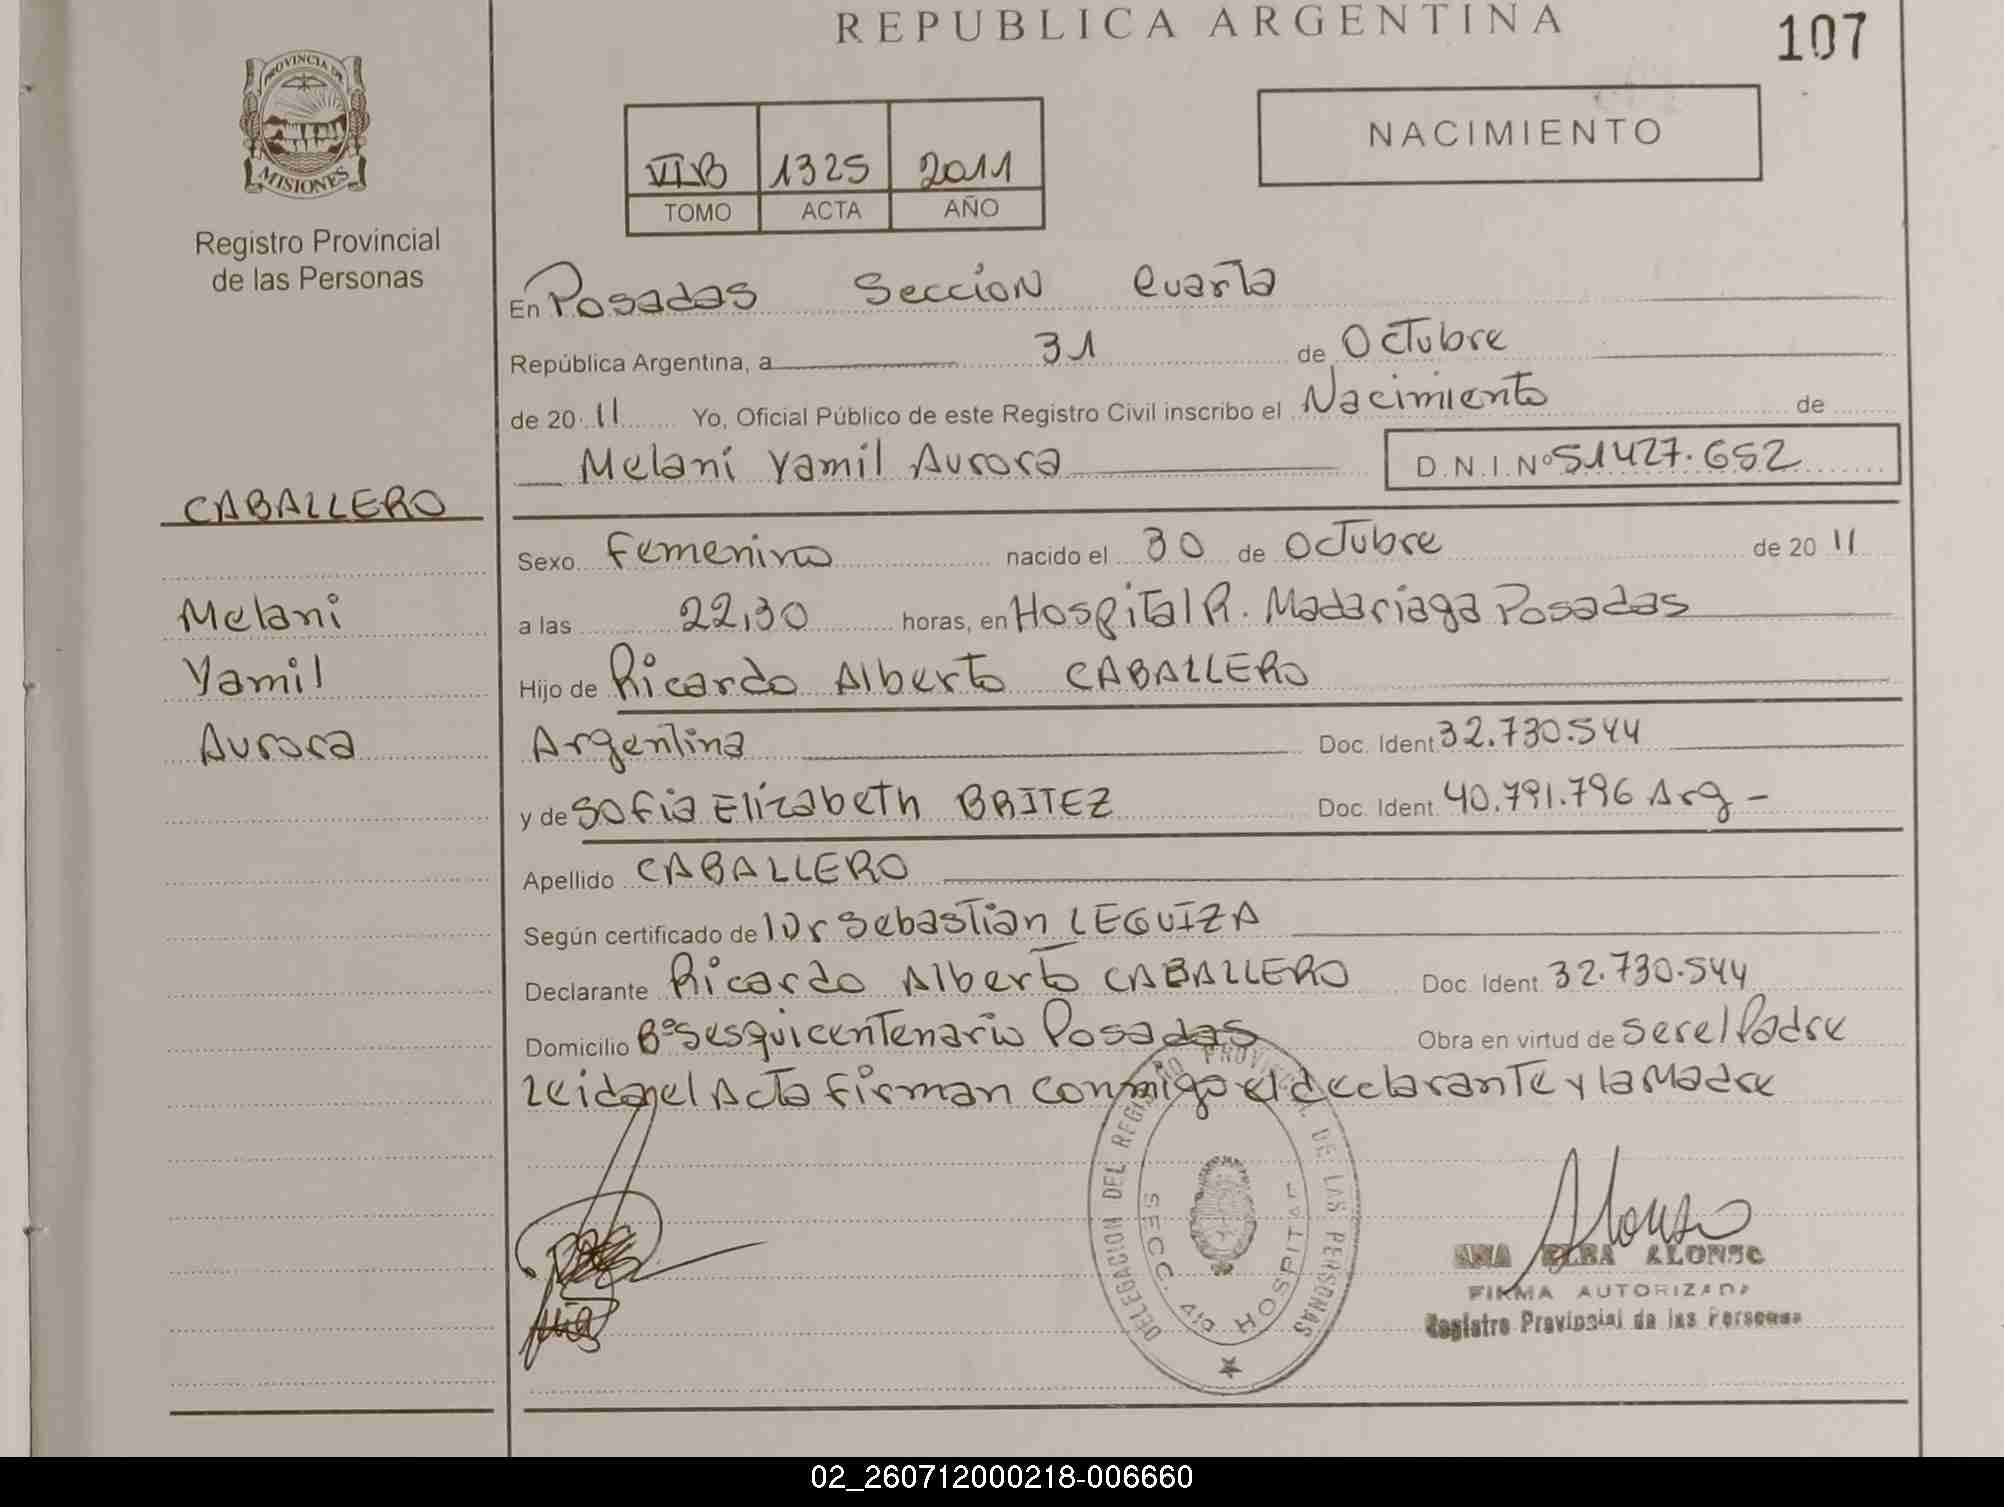 REPUBLICA ARGENTINA
107
PROVINCIA DE
MISIONES
Registro Provincial
de las Personas
VI B 1325 2011
TOMO ACTA AÑO
NACIMIENTO
En Posadas Seccion Cuarta
República Argentina, a 31 de Octubre
de 20 11 Yo, Oficial Público de este Registro Civil inscribo el Nacimiento de
Melani Yamil Aurora D.N.I.Nº 51427.652
CABALLERO
Melani
Yamil
Aurora
Sexo Femenino nacido el 30 de Octubre de 20 11
a las 22,30 horas, en Hospital R. Madariaga Posadas
Hijo de Ricardo Alberto CABALLERO
Argentina Doc. Ident 32.730.544
y de Sofia Elizabeth BRITEZ Doc. Ident 40.791.796 Arg -
Apellido CABALLERO
Según certificado de Dr Sebastian LEGUIZA
Declarante Ricardo Alberto CABALLERO Doc. Ident 32.730.544
Domicilio Bº Sesquicentenario Posadas Obra en virtud de ser el Padre
Leida el Acta firman conmigo el declarante y la Madre
DELEGACION DEL REGISTRO PROVINCIAL DE LAS PERSONAS
SECC. 4ta HOSPITAL
Alonso
ANA ELBA ALONSO
FIRMA AUTORIZADA
Registro Provincial de las Personas
02_260712000218-006660